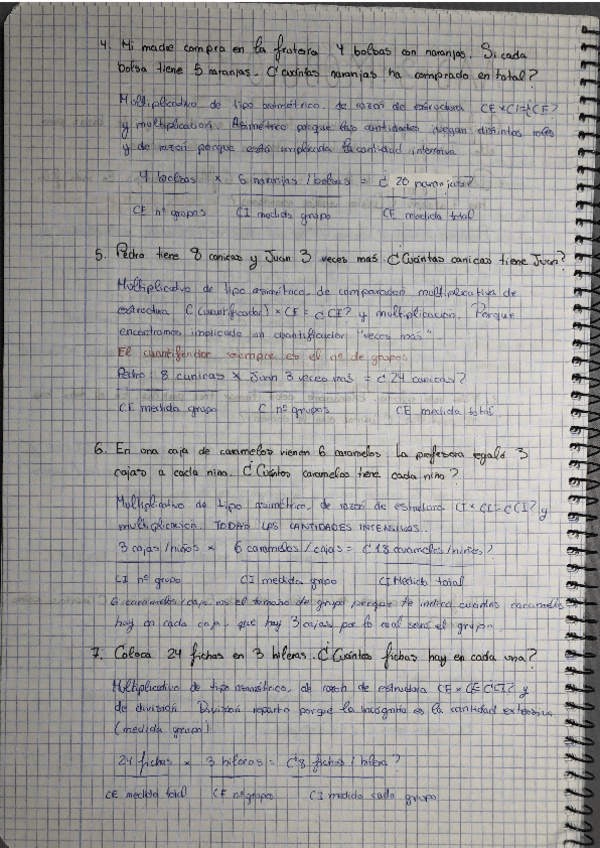 4. Mi madre compra en la frutería 4 bolsas con naranjas. Si cada
bolsa tiene 5 naranjas. ¿Cuántas naranjas ha comprado en total?
Multiplicativo de tipo asimétrico, de razón de estructura CE x CI=¿CE?
y multiplicación. Asimétrico porque las cantidades juegan distintos roles
y de razón porque está implicada la cantidad intensiva
4 bolsas x 5 naranjas / bolsas = ¿ 20 naranjas?
CE nº grupos CI medida grupo CE medida total
5. Pedro tiene 8 canicas y Juan 3 veces mas. ¿Cuántas canicas tiene Juan?
Multiplicativo de tipo asimétrico, de comparación multiplicativa de
estructura C (cuantificador) x CE = ¿CE? y multiplicación. Porque
encontramos implicado un cuantificador "veces más"
El cuantificador siempre es el nº de grupos
Pedro: 8 canicas x Juan 3 veces más = ¿ 24 canicas?
CE medida grupo C nº grupos CE medida total
6. En una caja de caramelos vienen 6 caramelos. La profesora regala 3
cajas a cada niño. ¿Cuántos caramelos tiene cada niño?
Multiplicativo de tipo asimétrico, de razón de estructura CI x CI=¿CI? y
multiplicación. TODAS LAS CANTIDADES INTENSIVAS.
3 cajas / niños x 6 caramelos / cajas = ¿18 caramelos / niños?
CI nº grupo CI medida grupo CI Medida total
6 caramelos/caja es el tamaño de grupo porque te indica cuántos caramelos
hay en cada caja, que hay 3 cajas por lo cual será el grupo.
7. Coloca 24 fichas en 3 hileras. ¿Cuántas fichas hay en cada una?
Multiplicativo de tipo asimétrico, de razón de estructura CE x CE ¿CI? y
de división. División reparto porque la incógnita es la cantidad extensiva
(medida grupo)
24 fichas x 3 hileras = ¿8 fichas / hilera?
CE medida total CE nº grupos CI medida cada grupo